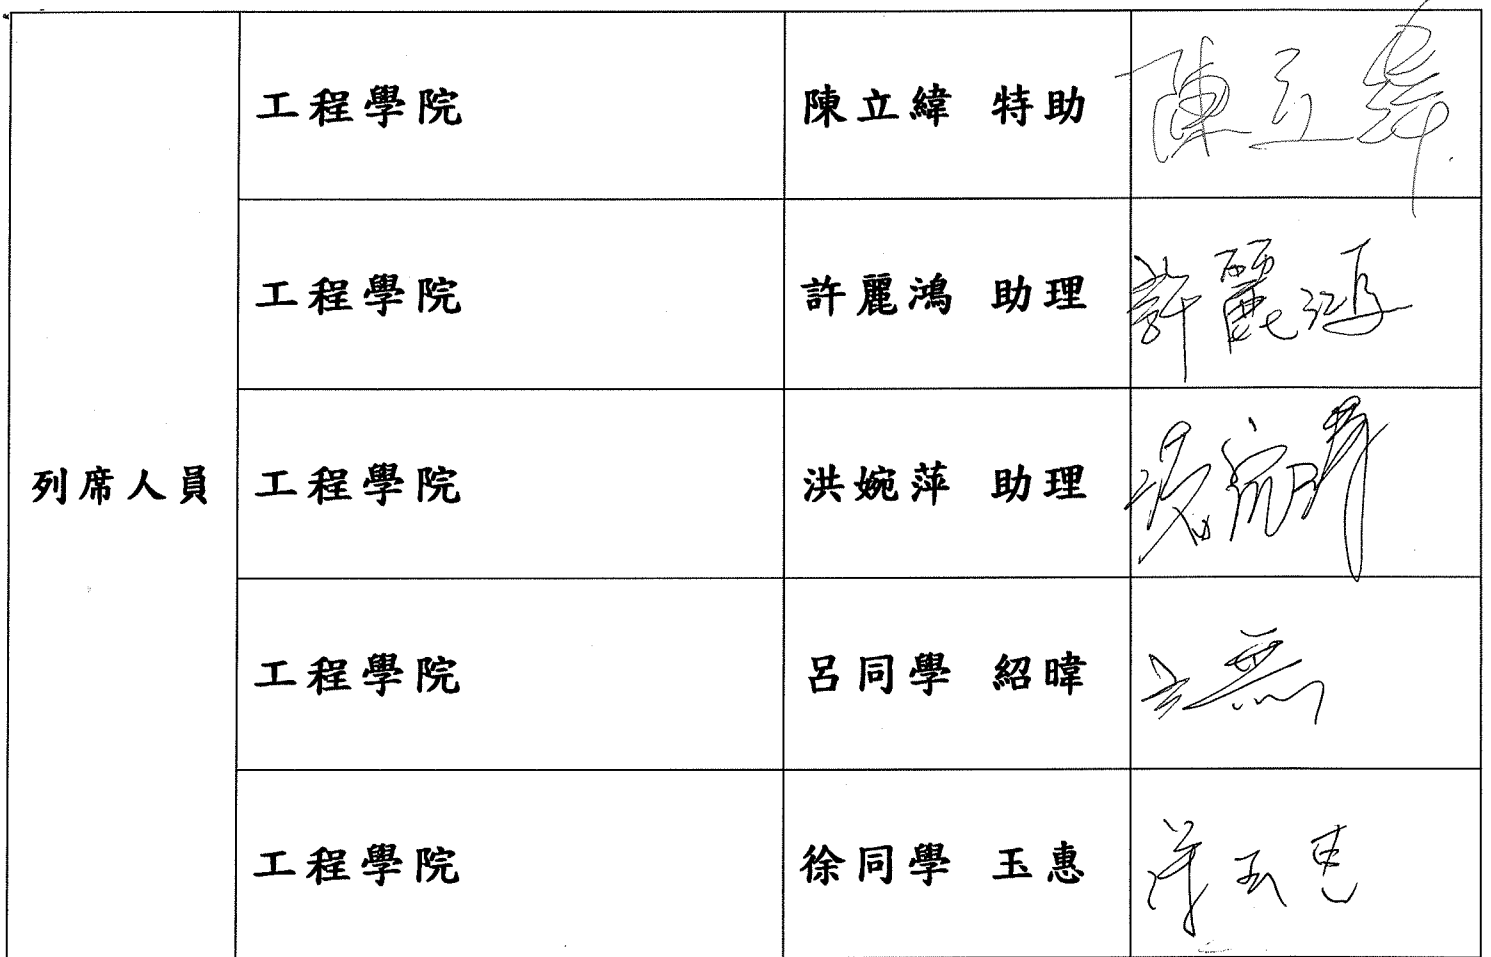 工程學院 陳立緯 特助 陳立緯
工程學院 許麗鴻 助理 許麗鴻
列席人員 工程學院 洪婉萍 助理
工程學院 呂同學 紹暐
工程學院 徐同學 玉惠 徐玉惠